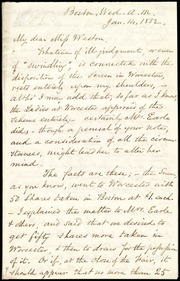 Boston, Wed. A.M.
Jan. 14, 1852.
My dear Miss Weston
Whatever of ill-judgment, or even
of "swindling" is connected with the
disposition of the Screen in Worcester,
rests entirely upon my shoulders,
altho' I may add that, so far as I know
the Ladies at Worcester approved of the
scheme entirely - certainly Mrs. Earle
did, though a perusal of your notes,
and a consideration of all the circum-
stances, might lead her to alter her
mind.
The facts are these; - the Screen
as you know, went to Worcester with
50 Shares taken in Boston at $1. each.
I explained the matter to Mrs. Earle
& others, and said that we desired to
get fifty shares more taken in
Worcester, & then to draw for the possession
of it. Or if, at the close of the Fair, it
should appear that no more than 25